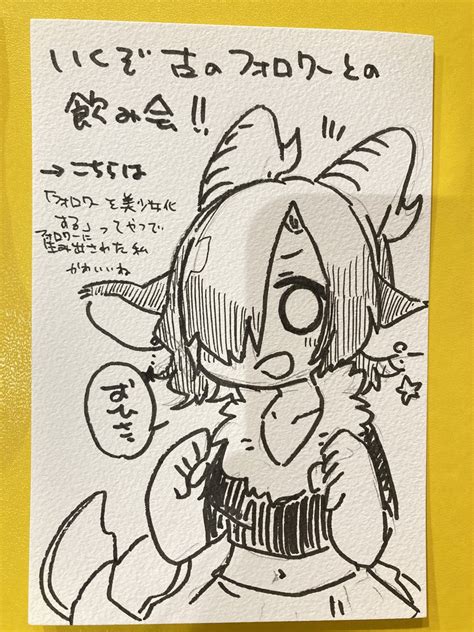 いくぞ 古のフォロワーとの
飲み会!!
→こちらは
「フォロワーを美少女化
する」ってやつで
フォロワーに
生み出された私
かわいいね
おひさ